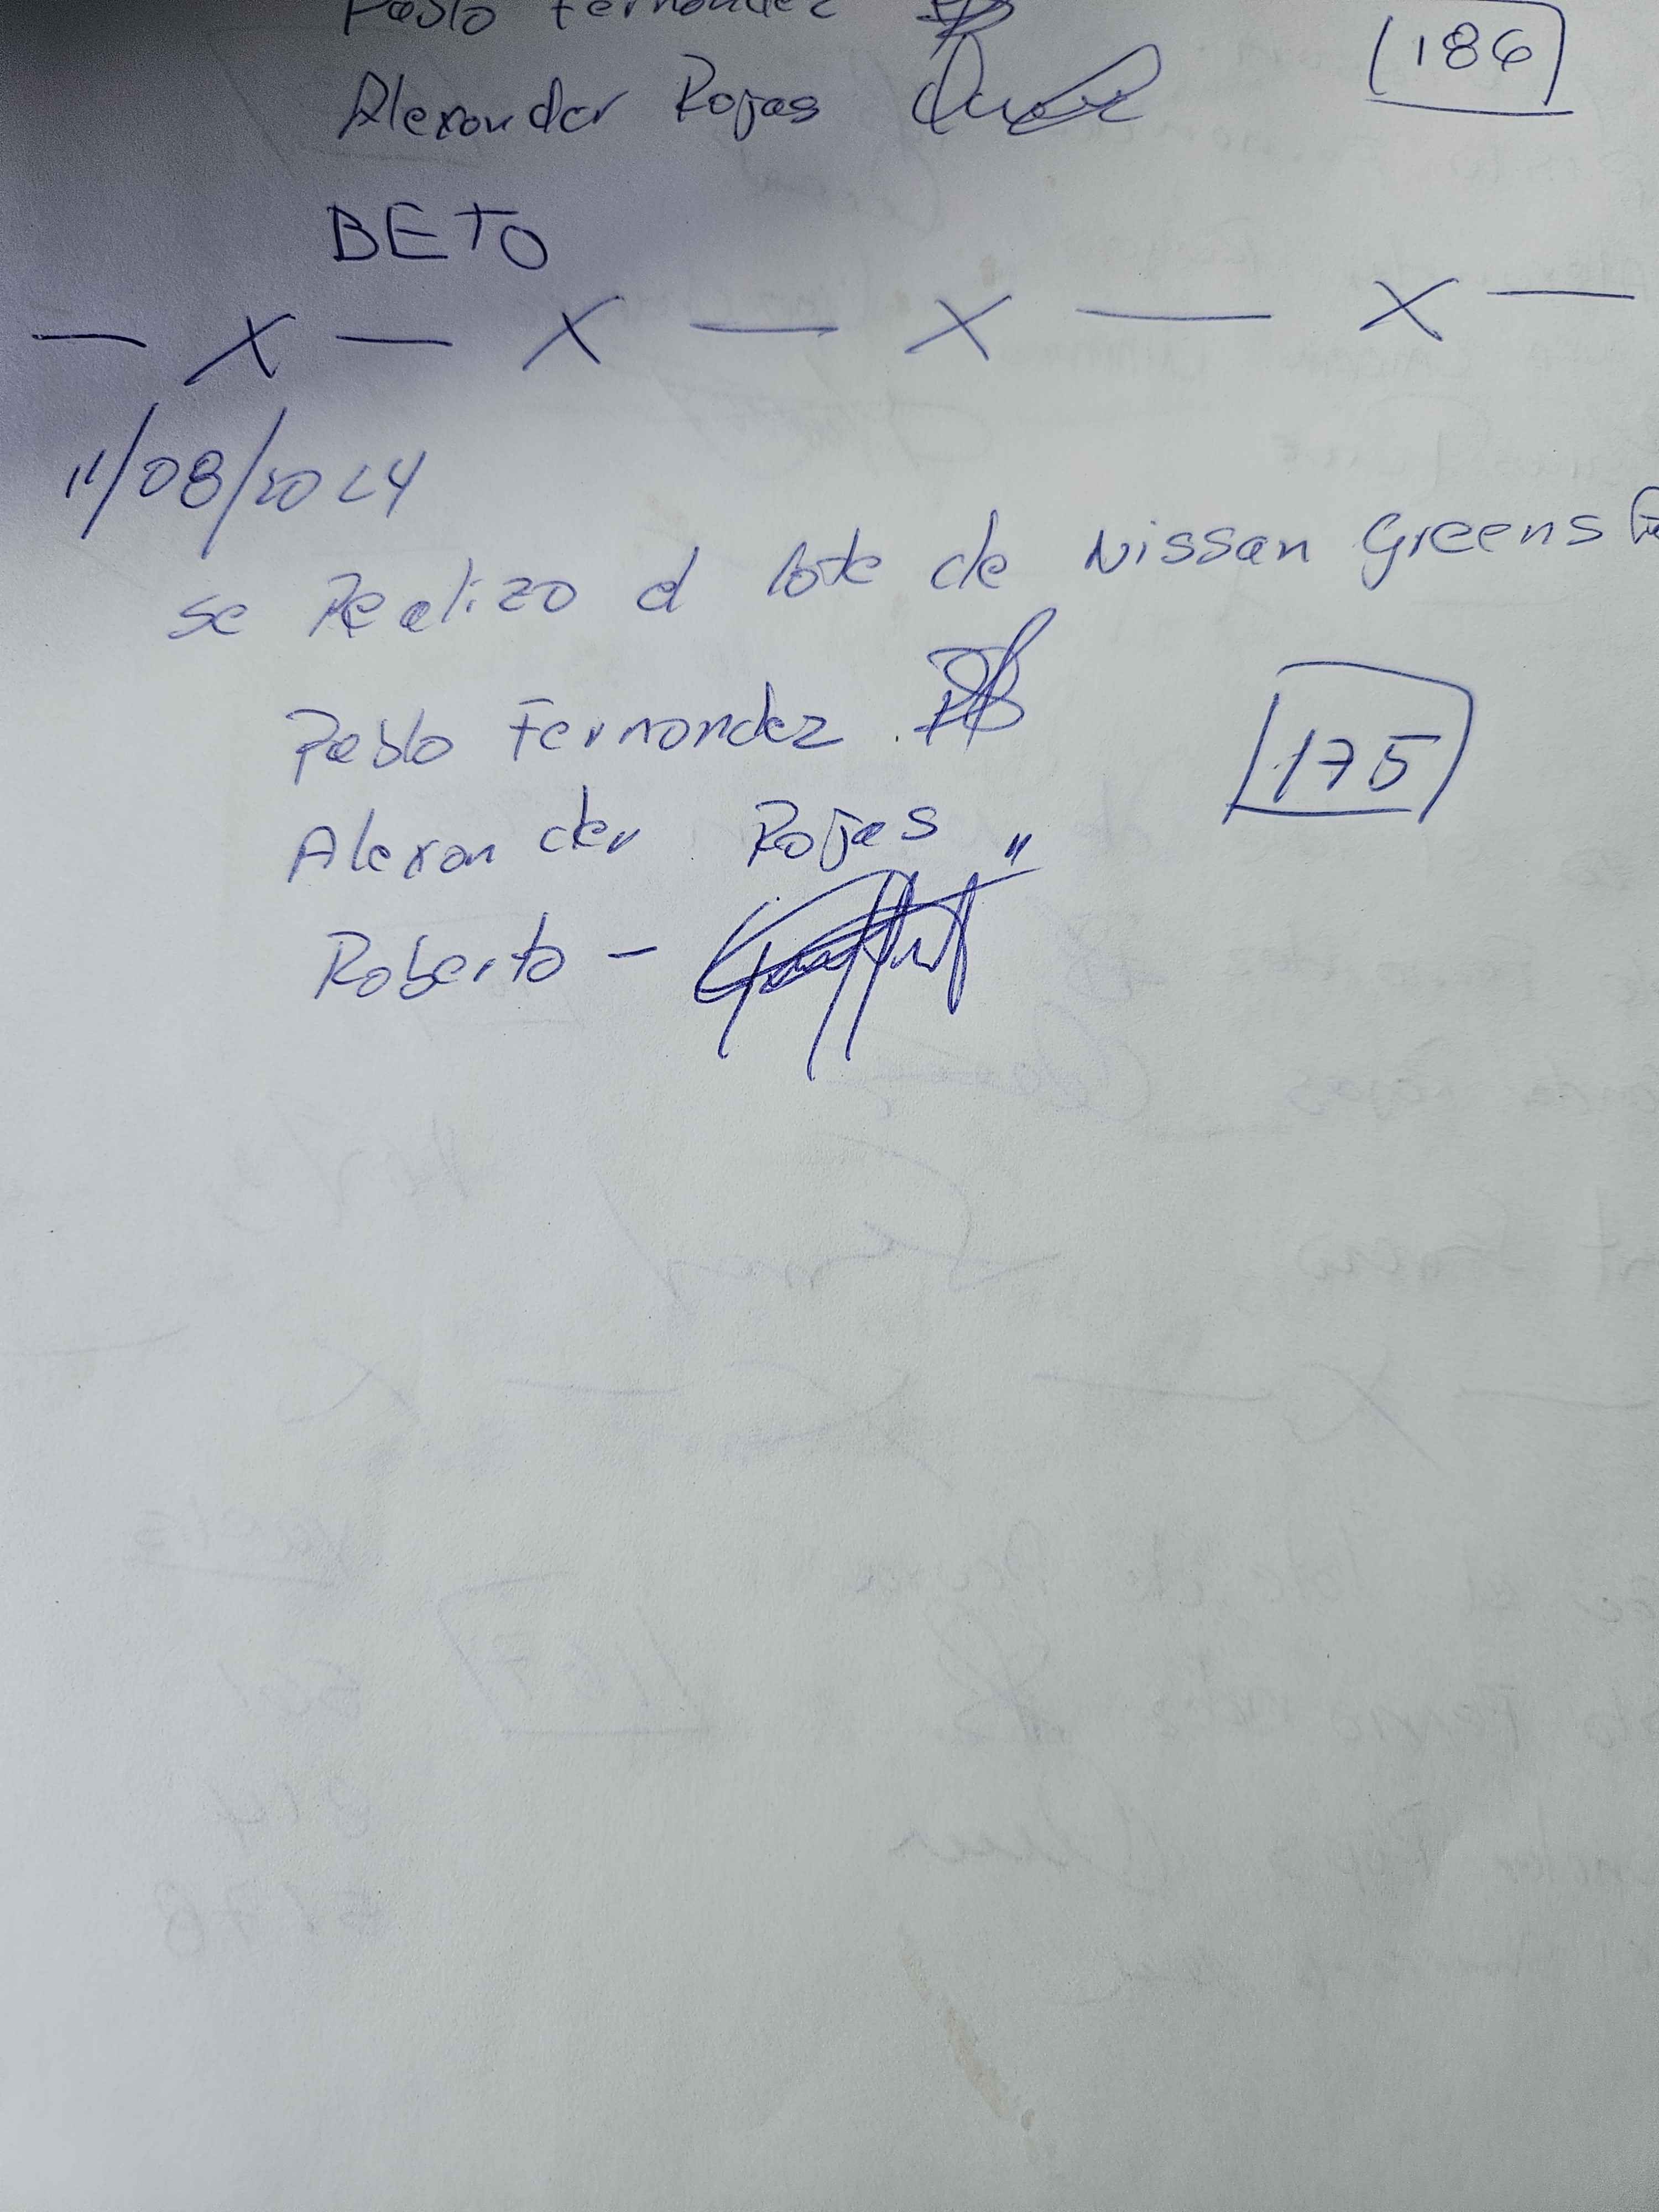 Pablo Fernandez
Alexander Rojas
186
BETO
— X — X — X — X —
11/08/2024
se Realizo el lote de Nissan Greens
Pablo Fernandez
175
Alexander Rojas "
Roberto -